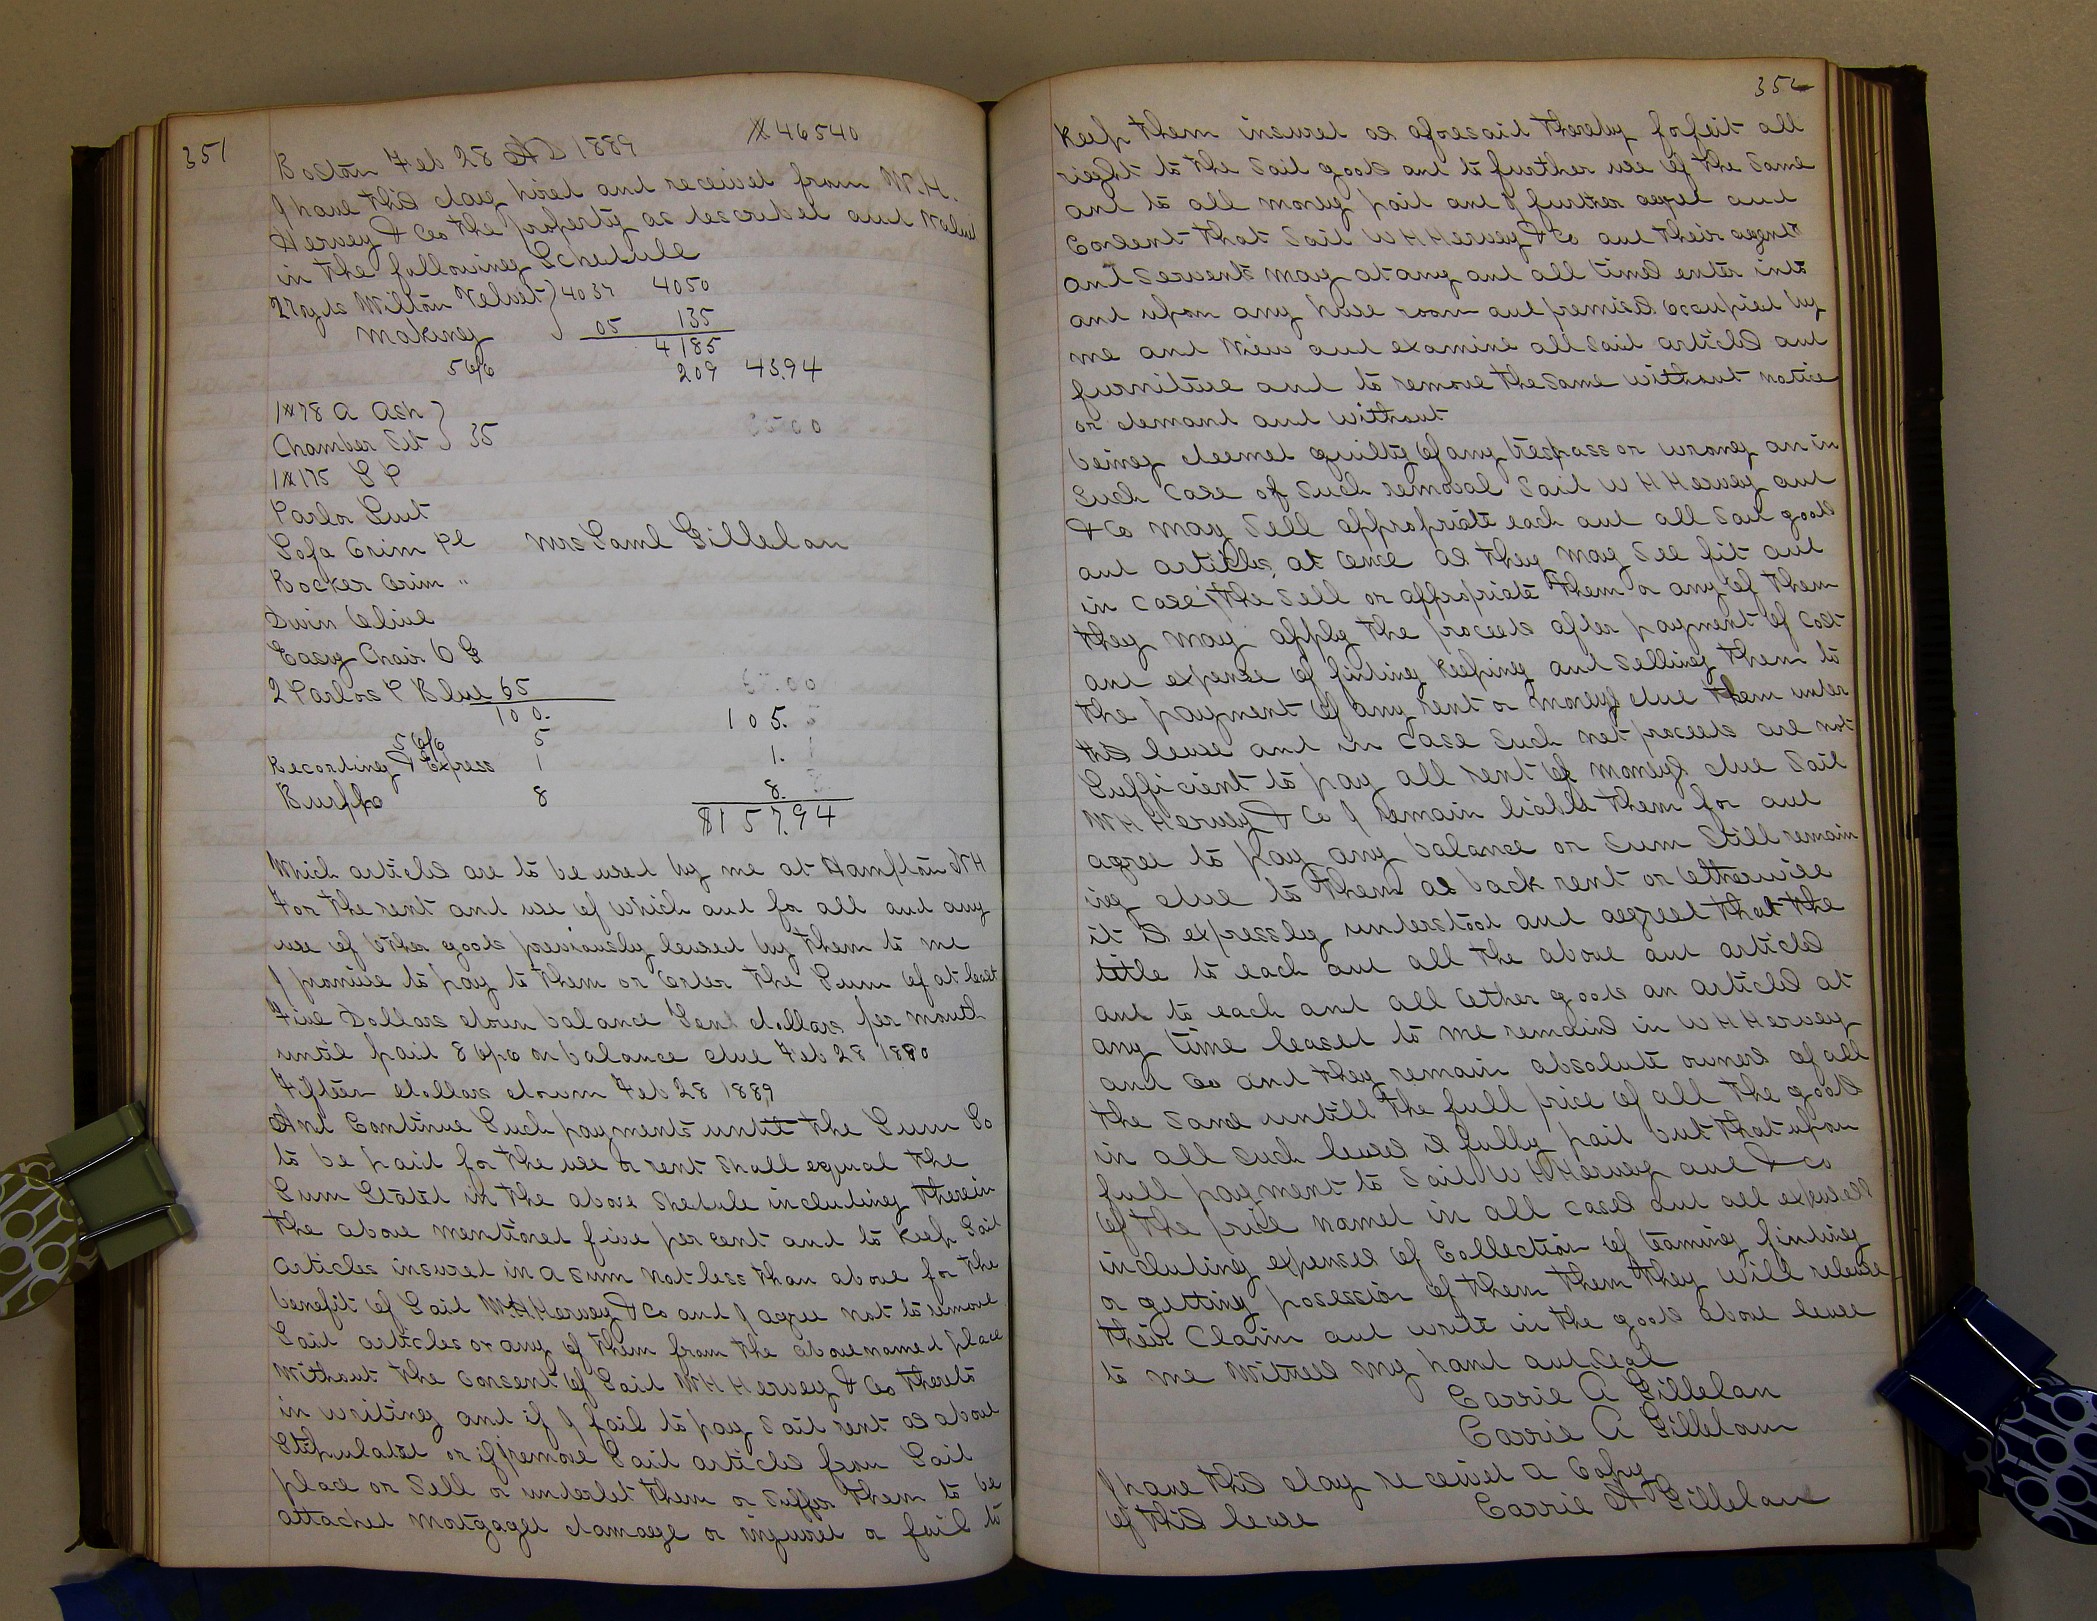 351
Boston Feb 28 AD 1889 # 46540
I have this day hired and received from W.H.
Hervey & Co the property as described and Valued
in the following Schedule
27 yds Wilton Velvet } 4037 4050
Making } 05 135
4185
5 % 209 43.94
1#78 A Ash }
Chamber Set } 35
1#175 S P
Parlor Suit
Sofa Crim Pl Mrs Saml Gillelan
Rocker Crim "
Divin Olive
Easy Chair O G
2 Parlors P Blue 65
100. 105.
5 % 5
Recording & Express 1 1.
Buffo 8 8.
$157.94
Which articles are to be used by me at Hampton NH
For the rent and use of which and for all and any
use of other goods previously leased by them to me
I promise to pay to them or order the Sum of at least
Five Dollars down balance Ten dollars per month
until paid 8 % on balance due Feb 28 1890
Fifteen dollars down Feb 28 1889
And Continue Such payments until the Sum So
to be paid for the use or rent shall equal the
Sum Stated in the above Shedule including therein
the above mentioned five per cent and to keep Said
articles insured in a sum not less than above for the
benefit of Said W.H.Hervey & Co and I agree not to remove
Said articles or any of them from the above named place
without the consent of Said W H Hervey & Co thereto
in writing and if I fail to pay said rent as above
Stipulated or if I remove Said articles from Said
place or sell or underlet them or suffer them to be
attached mortgaged damage or injured or fail to
352
keep them insured as aforesaid thereby forfeit all
right to the said goods and to further use of the same
and to all money paid and I further agree and
Consent that said W H Hervey & Co and their agents
and servants may at any and all times enter into
and upon any house room and premises occupied by
me and View and examine all said articles and
furniture and to remove the same without notice
or demand and without
being deemed guilty of any trespass or wrong an in
such case of such removal said W H Hervey and
& Co may sell appropriate each and all said goods
and articles at once as they may see fit and
in case the sell or appropriate them or any of them
they may apply the proceeds after payment of cost
and expense of finding keeping and selling them to
the payment of any rent or moneys due them under
this lease and in case such net proceeds are not
Sufficient to pay all rent of moneys due said
W H Hervey & Co I remain liable them for and
agree to pay any balance or sum still remain
ing due to them as back rent or otherwise
it is expressly understood and agreed that the
title to each and all the above and articles
and to each and all other goods an articles at
any time leased to me remains in W H Hervey
and Co and they remain absolute owners of all
the same untill the full price of all the goods
in all such leases is fully paid but that upon
full payment to said W H Hervey and & Co
of the price named in all cases and all expenses
including expenses of Collection of teaming finding
or getting possession of them them they will release
their Claim and write in the goods above lease
to me Witness my hand and seal
Carrie A Gillelan
Carrie A Gillelan
I have this day received a Copy
of this lease Carrie A Gillelan